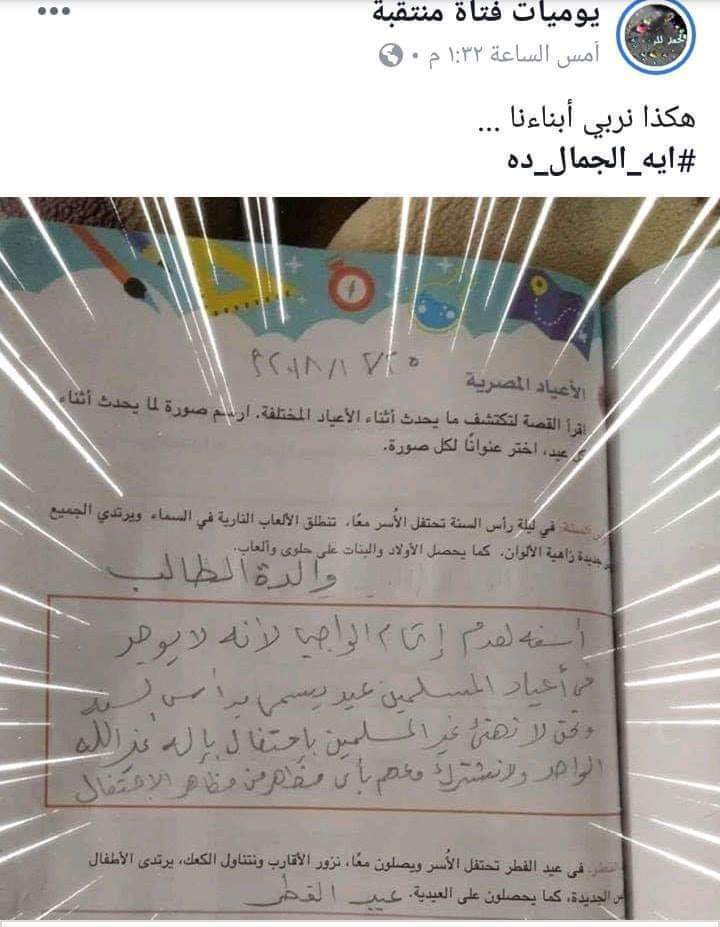 يوميات فتاة منتقبة
أمس الساعة ١:٣٢ م
هكذا نربي أبناءنا ...
#ايه_الجمال_ده
الأعياد المصرية
اقرأ القصة لتكتشف ما يحدث أثناء الأعياد المختلفة. ارسم صورة لما يحدث أثناء
كل عيد، اختر عنوانًا لكل صورة.
السنة: في ليلة رأس السنة تحتفل الأسر معًا، تنطلق الألعاب النارية في السماء ويرتدي الجميع
جديدة زاهية الألوان. كما يحصل الأولاد والبنات على حلوى وألعاب.
والدة الطالب
أسفه لعدم إتمام الواجب لأنه لا يوجد
في أعياد المسلمين عيد يسمى برأس السنه
ونحن لا نهنئ غير المسلمين بإحتفال بإله غير الله
الواحد ولا نشترك معهم بأى مظاهر من مظاهر الاحتفال
فى عيد الفطر تحتفل الأسر ويصلون معًا، نزور الأقارب ونتناول الكعك، يرتدى الأطفال
الجديدة، كما يحصلون على العيدية. عيد الفطر